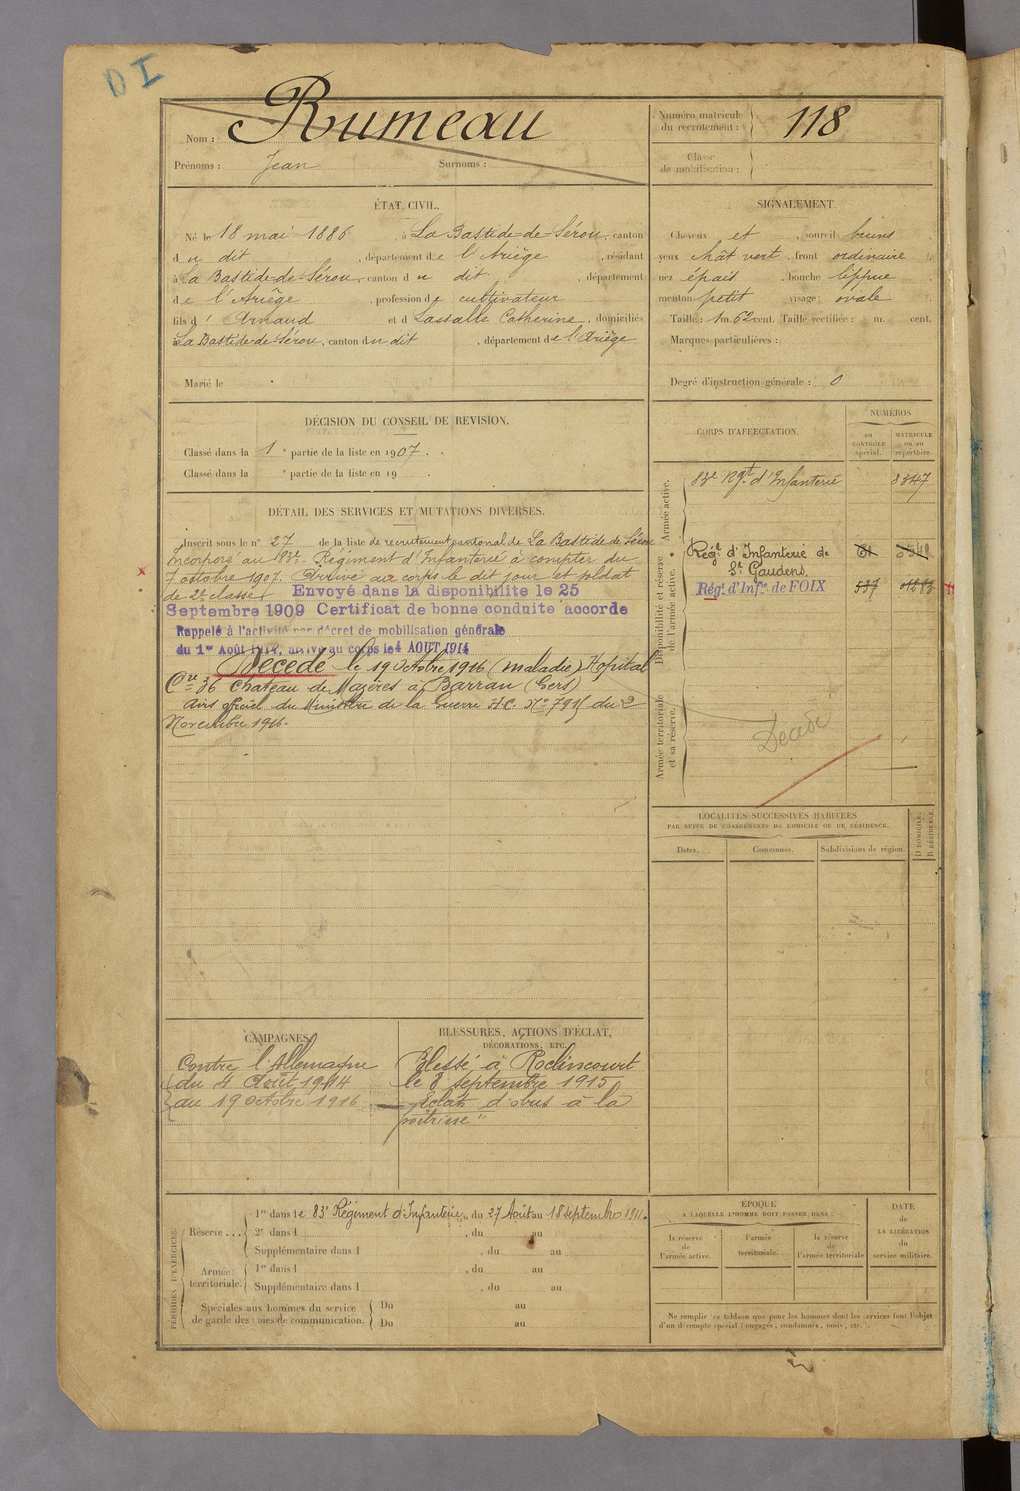 D I
Nom : Rumeau
Prénoms : Jean Surnoms :
Numéro matricule du recrutement : 118
Classe de mobilisation :
ÉTAT CIVIL.
Né le 18 mai 1886, à La Bastide-de-Sérou, canton
du dit, département de l'Ariège, résidant
à La Bastide-de-Sérou, canton du dit, département
de l'Ariège, profession de cultivateur
fils d' Arnaud et d Lassalle Catherine, domiciliés
à La Bastide-de-Sérou, canton du dit, département de l'Ariège
Marié le
SIGNALEMENT.
Cheveux et, sourcil bruns
yeux chât vert, front ordinaire
nez épais, bouche lippue
menton petit visage : ovale
Taille : 1 m. 62 cent. Taille rectifiée : m. cent.
Marques particulières :
Degré d'instruction générale : 0
DÉCISION DU CONSEIL DE REVISION.
Classé dans la 1e partie de la liste en 1907.
Classé dans la e partie de la liste en 19 .
DÉTAIL DES SERVICES ET MUTATIONS DIVERSES.
Inscrit sous le n° 27 de la liste de recrutement cantonal de La Bastide de Sérou
Incorporé au 83e Régiment d'Infanterie à compter du
7 octobre 1907. Arrivé au corps le dit jour et soldat
de 2e classe. Envoyé dans la disponibilite le 25
Septembre 1909 Certificat de bonne conduite accorde
Rappelé à l'activité par décret de mobilisation générale
du 1er Août 1914, arrivé au corps le 4 AOUT 1914
Décédé le 19 Octobre 1916 (maladie) Hopital
Cre 36 Chateau de Mazères à Barran (Gers)
Avis officiel du Ministre de la Guerre du 2
Novembre 1916.
CORPS D'AFFECTATION.
NUMÉROS
au CONTRÔLE spécial.
MATRICULE ou au répertoire.
Armée active.
83e Rgt d'Infanterie 8347
Disponibilité et réserve de l'armée active.
Régt d'Infanterie de
St Gaudens.
Régt d'Infie de FOIX 537
Armée territoriale et sa réserve.
Décédé
LOCALITÉS SUCCESSIVES HABITÉES
PAR SUITE DE CHANGEMENTS DE DOMICILE OU DE RÉSIDENCE.
Dates. Communes. Subdivisions de région. D DOMICILE. R RÉSIDENCE.
CAMPAGNES
Contre l'Allemagne
du 4 Août 1914
au 19 Octobre 1916
BLESSURES, ACTIONS D'ÉCLAT,
DÉCORATIONS, ETC.
Blessé à Roclincourt
le 8 septembre 1915
"Eclats d'obus à la
poitrine"
PÉRIODES D'EXERCICES
Réserve ...
1re dans le 83e Régiment d'Infanterie, du 27 Août au 18 septembre 1911.
2e dans l , du au
Supplémentaire dans l , du au
Armée territoriale.
1re dans l , du au
Supplémentaire dans l , du au
Spéciales aux hommes du service de garde des voies de communication.
Du au
Du au
ÉPOQUE
A LAQUELLE L'HOMME DOIT PASSER DANS :
la réserve de l'armée active.
l'armée territoriale.
la réserve de l'armée territoriale
DATE de LA LIBÉRATION du service militaire.
Ne remplir ce tableau que pour les hommes dont les services font l'objet
d'un décompte spécial (engagés, condamnés, omis, etc.).